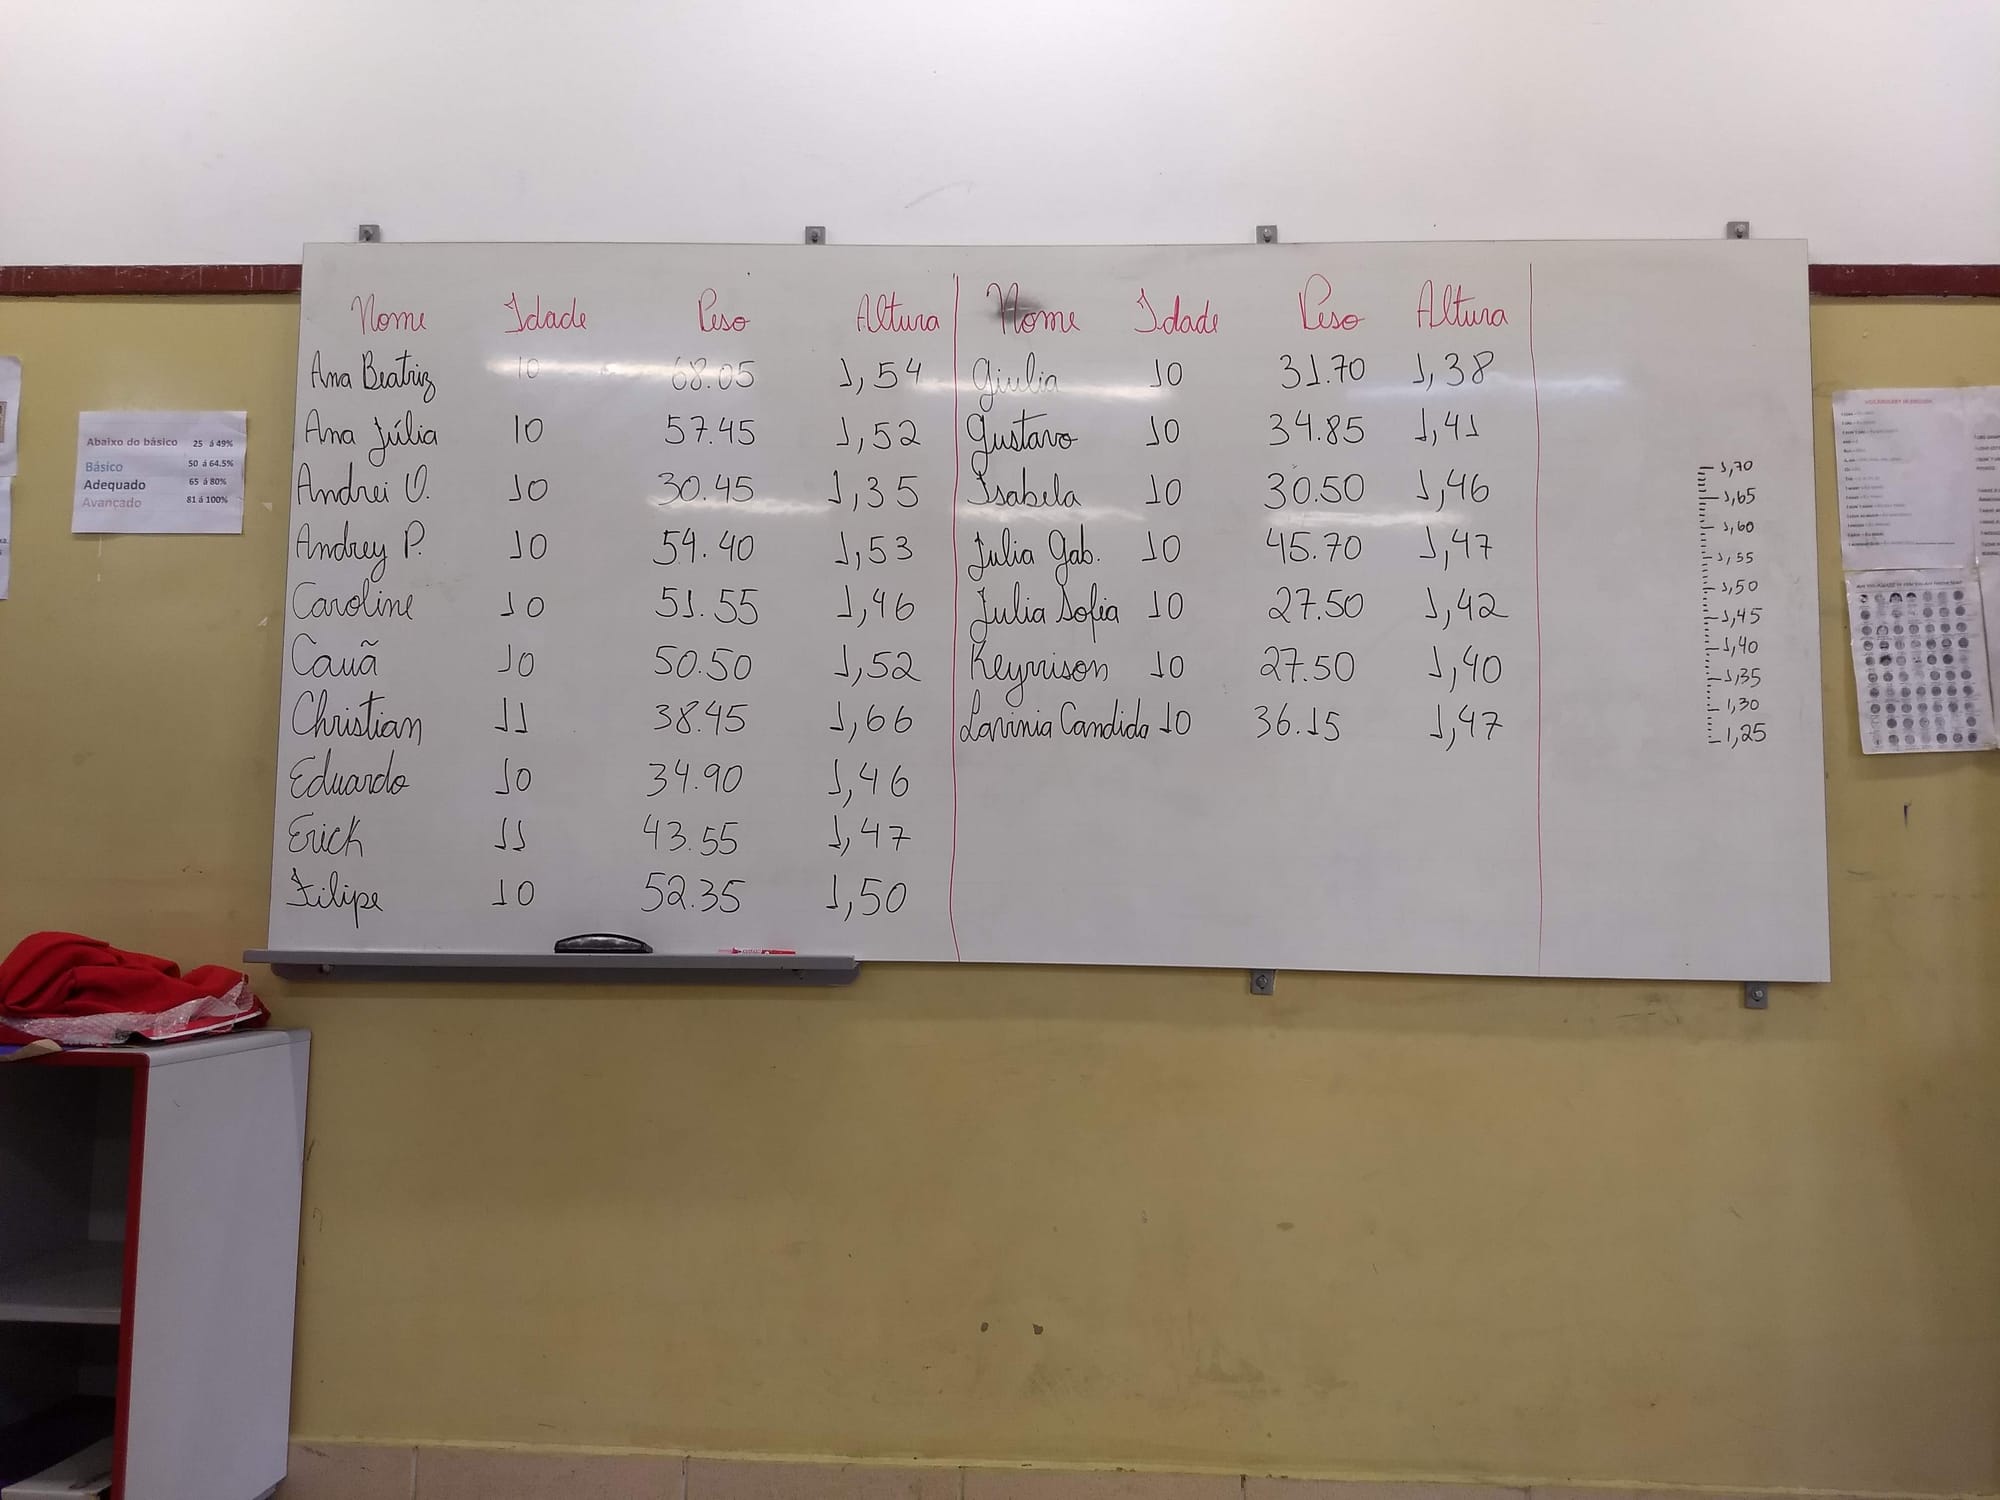 Nome Idade Peso Altura
Ana Beatriz 10 68.05 1,54
Ana Júlia 10 57.45 1,52
Andrei O. 10 30.45 1,35
Andrey P. 10 54.40 1,53
Caroline 10 51.55 1,46
Cauã 10 50.50 1,52
Christian 11 38.45 1,66
Eduardo 10 34.90 1,46
Erick 11 43.55 1,47
Filipe 10 52.35 1,50
Nome Idade Peso Altura
Giulia 10 31.70 1,38
Gustavo 10 34.85 1,41
Isabela 10 30.50 1,46
Julia Gab. 10 45.70 1,47
Julia Sofia 10 27.50 1,42
Keyrrison 10 27.50 1,40
Lavinia Candido 10 36.15 1,47
1,70
1,65
1,60
1,55
1,50
1,45
1,40
1,35
1,30
1,25
Abaixo do básico 25 á 49%
Básico 50 á 64.5%
Adequado 65 á 80%
Avançado 81 á 100%
VOCABULARY IN ENGLISH